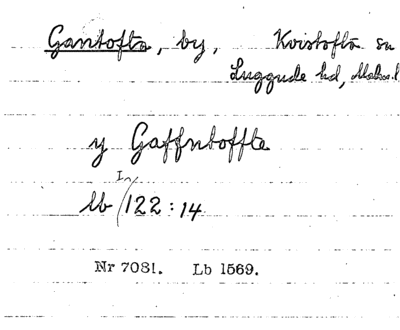 Gantofta, by, Kvistofta sn
Luggude hd, Malm.l
y Gaffntoffte
lb I, 122:14
Nr 7081. Lb 1569.